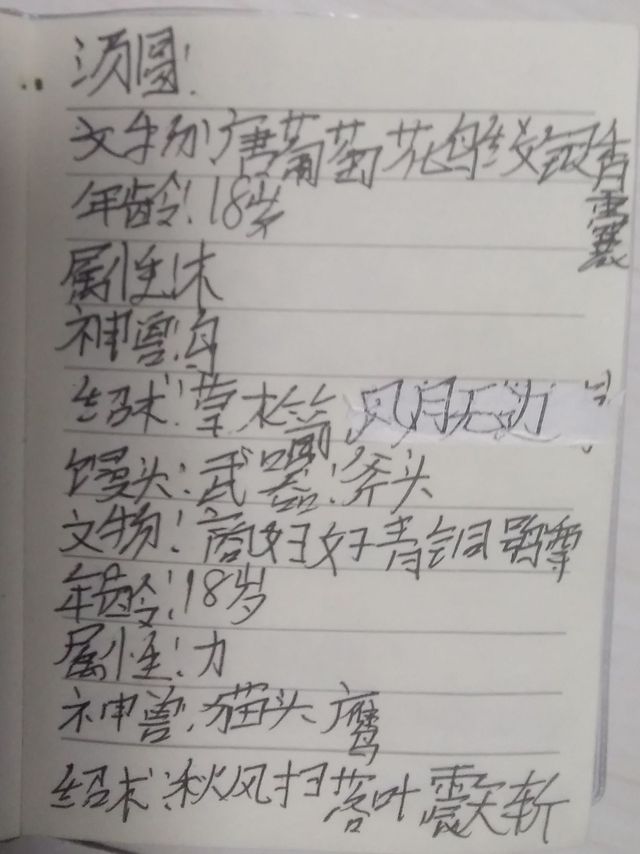 汤圆:
文物:唐葡萄花鸟纹银香囊
年龄:18岁
属性:木
神兽:鸟
绍术:草木 风月无边
馒头:武器:斧头
文物:商妇好青铜鸮尊
年龄:18岁
属性:力
神兽:猫头鹰
绍术:秋风扫落叶 震天斩